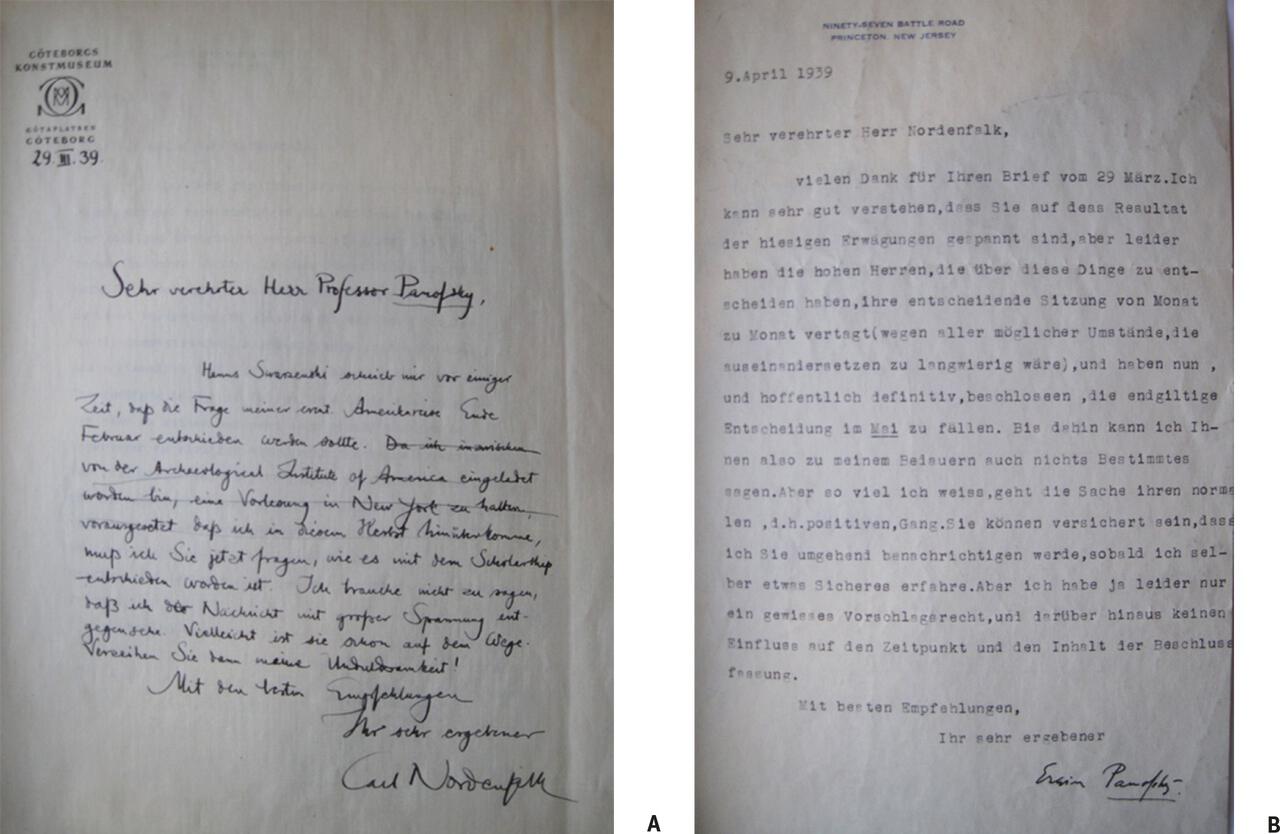 GÖTEBORGS
KONSTMUSEUM
GÖTAPLATSEN
GÖTEBORG
29. III. 39.
Sehr verehrter Herr Professor Panofsky,
Hanns Swarzenski schrieb mir vor einiger
Zeit, daß die Frage meiner event. Amerikareise Ende
Februar entschieden werden sollte. Da ich inzwischen
von der Archaeological Institute of America eingeladet
worden bin, eine Vorlesung in New York zu halten,
vorausgesetzt daß ich in diesem Herbst hinüberkomme,
muß ich Sie jetzt fragen, wie es mit dem Scholarship
entschieden worden ist. Ich brauche nicht zu sagen,
daß ich der Nachricht mit großer Spannung ent-
gegensehe. Vielleicht ist sie schon auf dem Wege.
Verzeihen Sie dann meine Unduldsamkeit!
Mit den besten Empfehlungen
Ihr sehr ergebener
Carl Nordenfalk
A
NINETY-SEVEN BATTLE ROAD
PRINCETON, NEW JERSEY
9.April 1939
Sehr verehrter Herr Nordenfalk,
vielen Dank für Ihren Brief vom 29 März.Ich
kann sehr gut verstehen,dass Sie auf dass Resultat
der hiesigen Erwägungen gespannt sind,aber leider
haben die hohen Herren,die über diese Dinge zu ent-
scheiden haben,ihre entscheidende Sitzung von Monat
zu Monat vertagt(wegen aller möglicher Umstände,die
auseinandersetzen zu langwierig wäre),und haben nun ,
und hoffentlich definitiv,beschlossen ,die endgiltige
Entscheidung im Mai zu fällen. Bis dahin kann ich Ih-
nen also zu meinem Bedauern auch nichts Bestimmtes
sagen.Aber so viel ich weiss,geht die Sache ihren norma
len ,d.h.positiven,Gang.Sie können versichert sein,dass
ich Sie umgehend benachrichtigen werde,sobald ich sel-
ber etwas Sicheres erfahre.Aber ich habe ja leider nur
ein gewisses Vorschlagsrecht,und darüber hinaus keinen
Einfluss auf den Zeitpunkt und den Inhalt der Beschluss
fassung.
Mit besten Empfehlungen,
Ihr sehr ergebener
Erwin Panofsky.
B